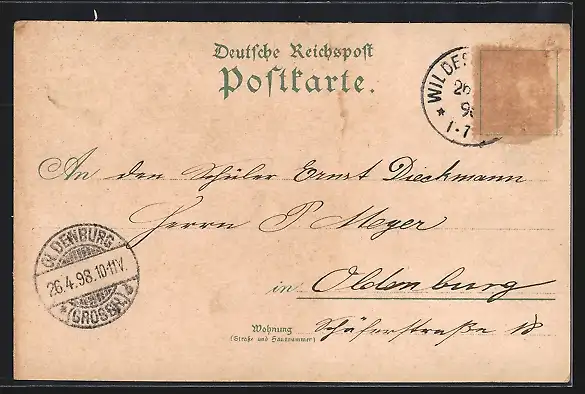 Deutsche Reichspost
Postkarte.
WILDES
26
9
1-1
An den Schüler Ernst Dieckmann
Herrn P. Meyer
OLDENBURG
26.4.98.10-11V.
(GROSSH.)
in Oldenburg
Wohnung
(Straße und Hausnummer)
Schäferstraße 18